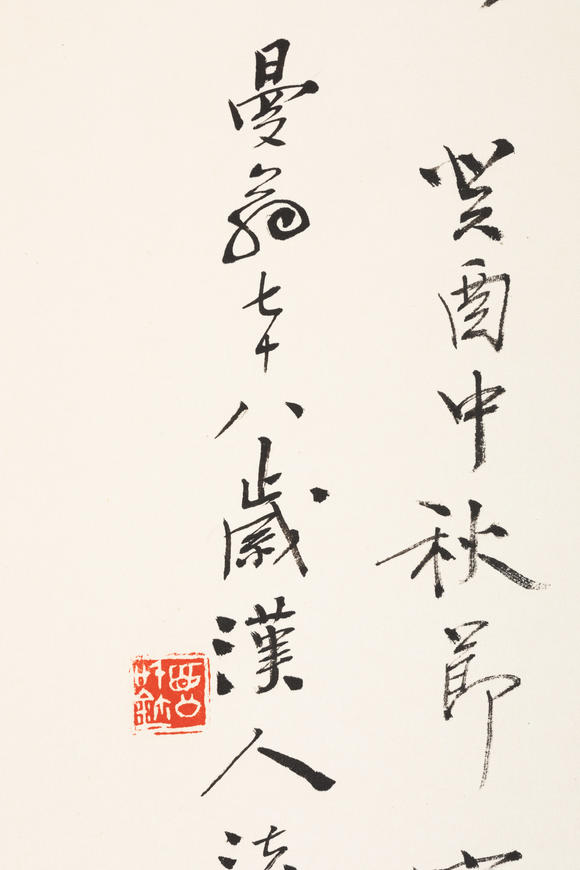 癸酉中秋節
曼翁七十八歲漢人